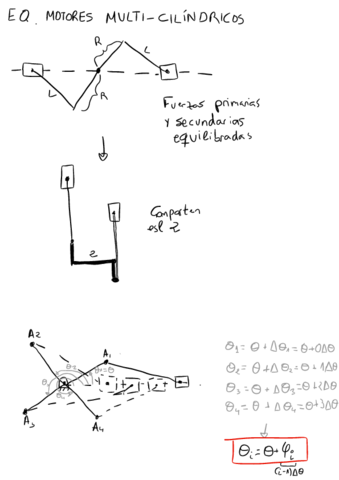 EQ. MOTORES MULTI-CILÍNDRICOS
R
L
L
R
Fuerzas primarias
y secundarias
equilibradas
z
Comparten
esl 2
A2
A1
A3
A4
θ1 = θ + Δθ1 = θ + 0Δθ
θ2 = θ + Δθ2 = θ + 1Δθ
θ3 = θ + Δθ3 = θ + 2Δθ
θ4 = θ + Δθ4 = θ + 3Δθ
θi = θ + φi
(i-1)Δθ